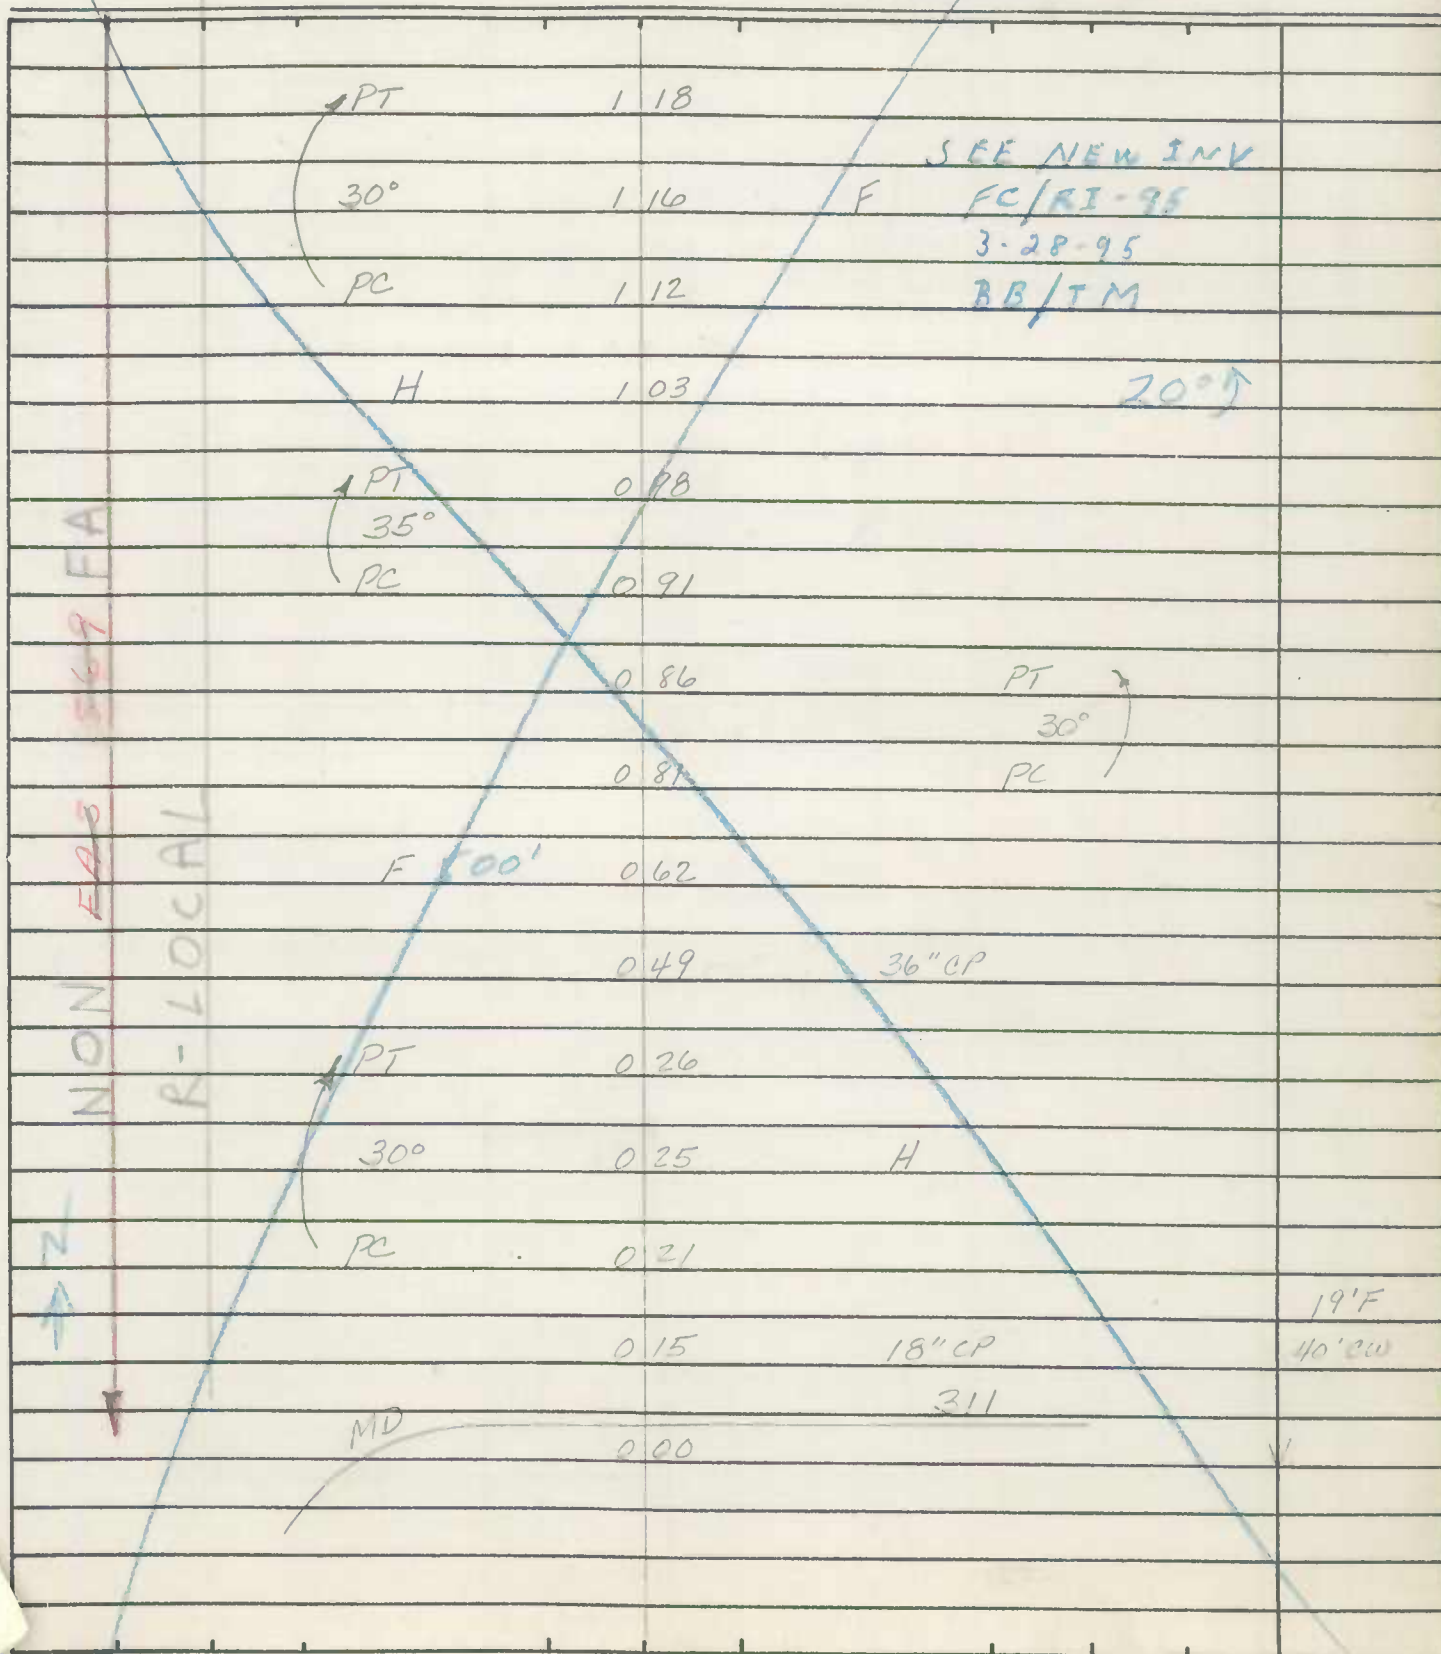 PT 1 18
SEE NEW INV
30° 1 16 F FC/RI-95
3-28-95
PC 1 12 BB/TM
H 1 03 20°
PT 0 98
35°
PC 0 91
0 86 PT
30°
0 81 PC
F 500' 0 62
0 49 36" CP
PT 0 26
30° 0 25 H
PC 0 21
19'F
0 15 18" CP 40' CW
311
MD
0 00
NON FAS FA
R-LOCAL
N